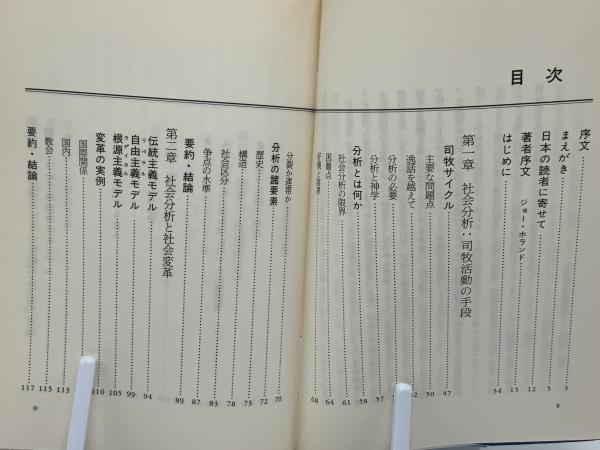 目次
序文 3
まえがき 5
日本の読者に寄せて 12
著者序文 ジョー・ホランド 15
はじめに 34
第一章 社会分析：司牧活動の手段
司牧サイクル 47
主要な問題点 50
逸話を越えて 52
分析の必要
分析と神学 57
分析とは何か 58
社会分析の限界 61
困難点 64
68
8
分裂か連帯か 70
分析の諸要素 72
歴史 73
構造 78
社会区分 83
争点の水準 87
要約・結論 89
第二章 社会分析と社会変革
伝統主義モデル 94
自由主義モデル 99
リベラル
根源主義モデル 105
ラディカル
変革の実例 110
国際関係
国内 113
教会 115
要約・結論 117
9